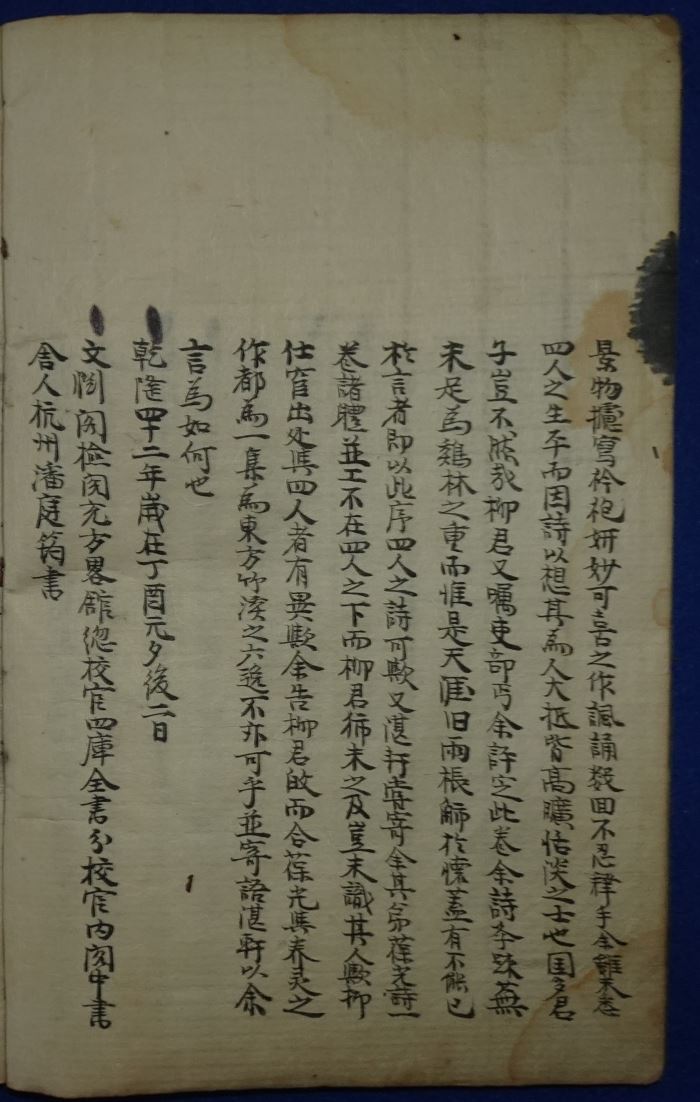 景物攄寫衿袍妍妙可喜之作諷誦数回不忍釋手余雖未悉
四人之生平而因詩以想其為人大抵皆高曠恬淡之士也国多君
子豈不然哉柳君又囑吏部丐余評定此卷余詩李蹂蕪
未足為鷄林之重而惟是天涯旧雨棖觸於懷盖有不能已
於言者即以此序四人之詩可歟又湛軒嘗寄余其弟葆光詩一
卷諸體並工不在四人之下而柳君獨未之及豈未識其人歟抑
仕宦出处與四人者有異歟余告柳君啟而合葆光與春灵之
作都為一集為東方竹溪之六逸不亦可乎並寄語湛軒以余
言為如何也
乾隆四十二年歲在丁酉元夕後二日
文淵阁檢閱充方畧舘總校官四庫全書分校官内阁中書
舍人杭州潘庭筠書